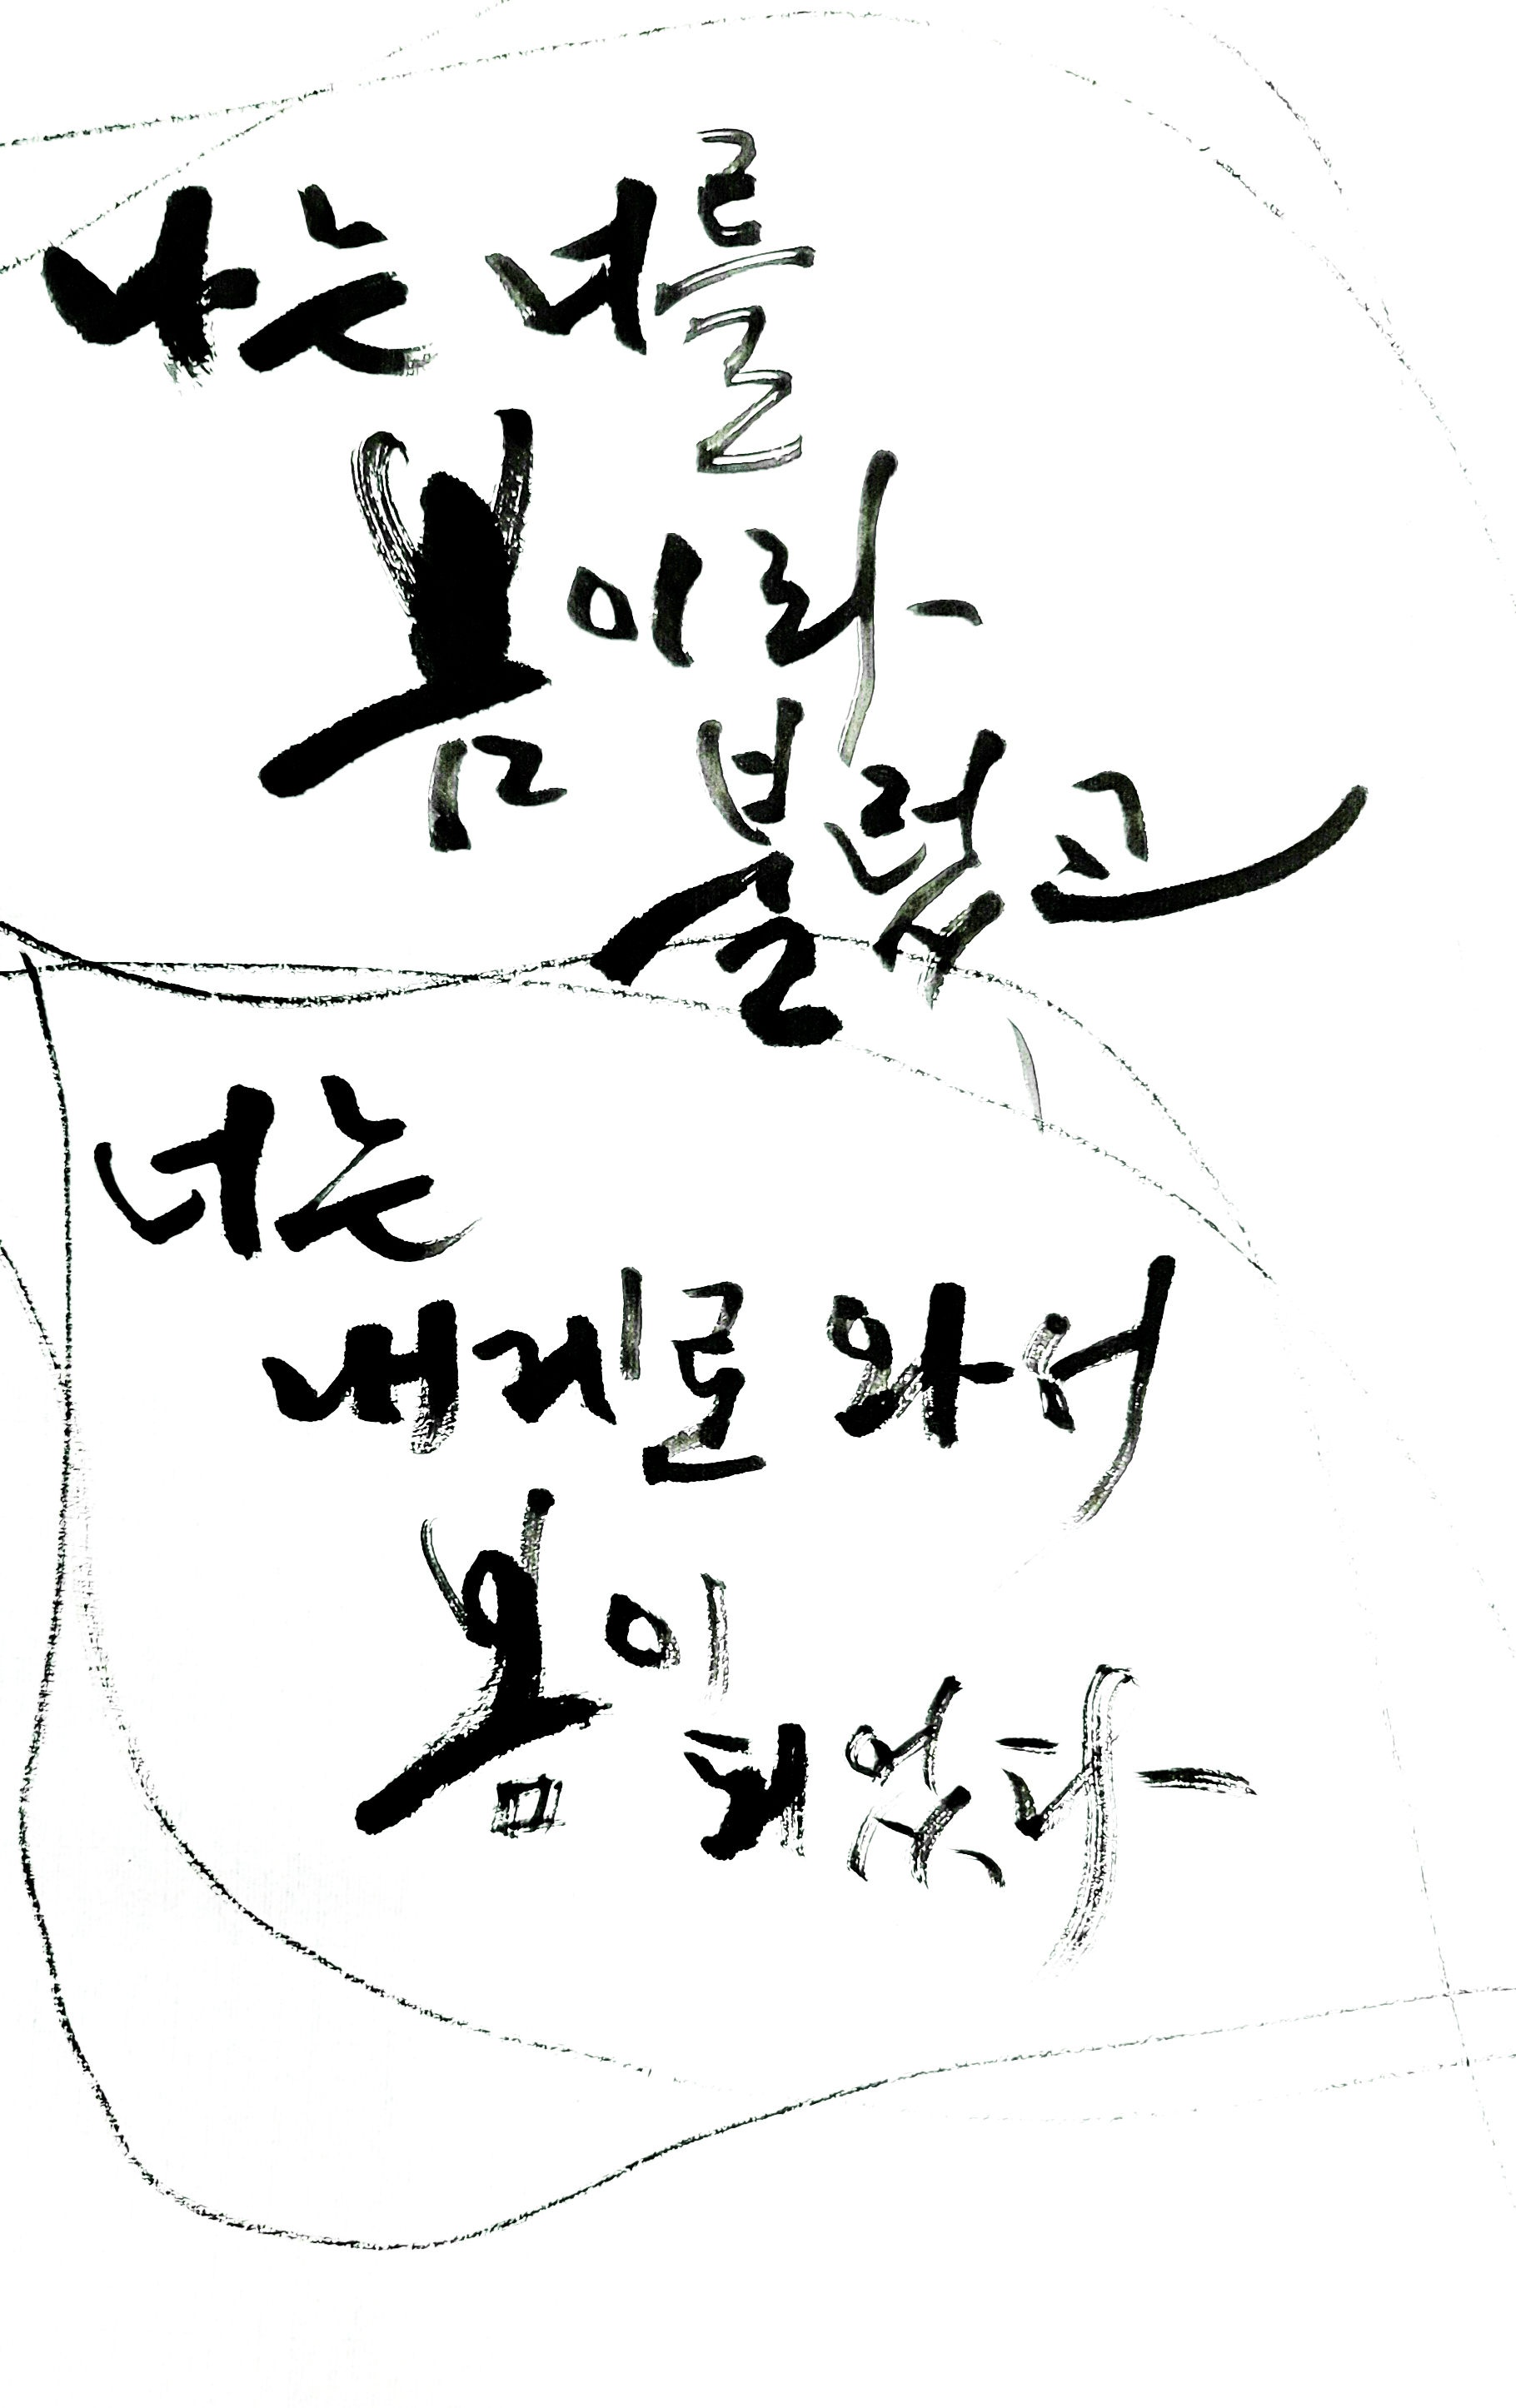 나는 너를
봄이라
불렀고
너는
내게로 와서
봄이
되었다